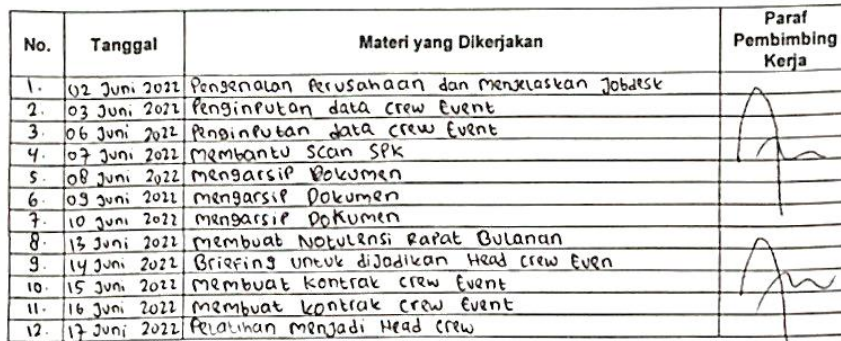 No. Tanggal Materi yang Dikerjakan Paraf Pembimbing Kerja
1. 02 Juni 2022 Pengenalan Perusahaan dan Menjelaskan Jobdesk
2. 03 Juni 2022 Penginputan data crew Event
3. 06 Juni 2022 Penginputan data crew Event
4. 07 Juni 2022 Membantu Scan SPK
5. 08 Juni 2022 mengarsip Dokumen
6. 09 Juni 2022 mengarsip Dokumen
7. 10 Juni 2022 mengarsip Dokumen
8. 13 Juni 2022 Membuat Notulensi Rapat Bulanan
9. 14 Juni 2022 Briefing untuk dijadikan Head crew Even
10. 15 Juni 2022 Membuat kontrak crew Event
11. 16 Juni 2022 Membuat kontrak crew Event
12. 17 Juni 2022 Pelatihan menjadi Head crew